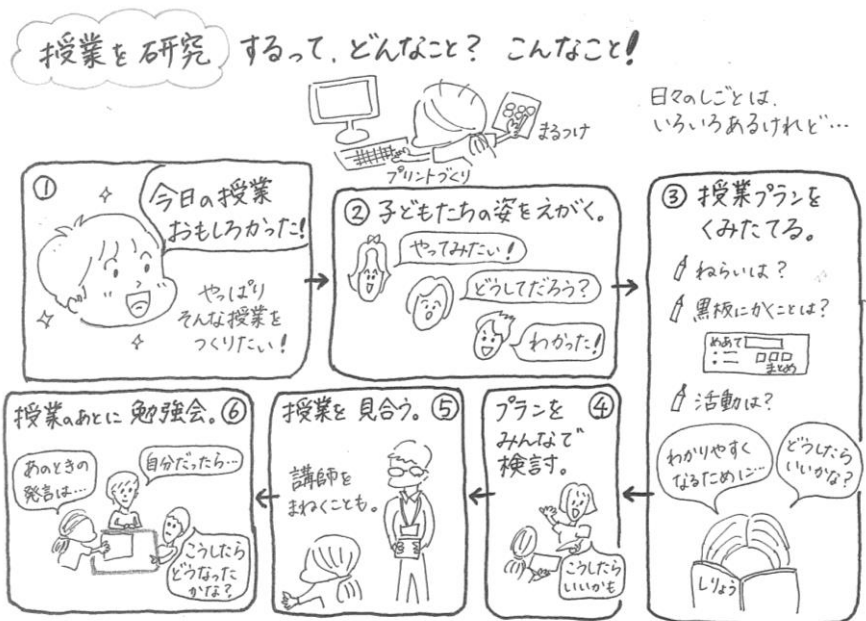 授業を研究するって、どんなこと? こんなこと!
日々のしごとは、
いろいろあるけれど…
まるつけ
プリントづくり
①
今日の授業
おもしろかった!
やっぱり
そんな授業を
つくりたい!
② 子どもたちの姿をえがく。
やってみたい!
どうしてだろう?
わかった!
③ 授業プランを
くみたてる。
ねらいは?
黒板にかくことは?
めあて
まとめ
活動は?
わかりやすく
なるために…
どうしたら
いいかな?
しりょう
プランを ④
みんなで
検討。
こうしたら
いいかも
授業を見合う。⑤
講師を
まねくことも。
授業のあとに勉強会。⑥
あのときの
発言は…
自分だったら…
こうしたら
どうなった
かな?